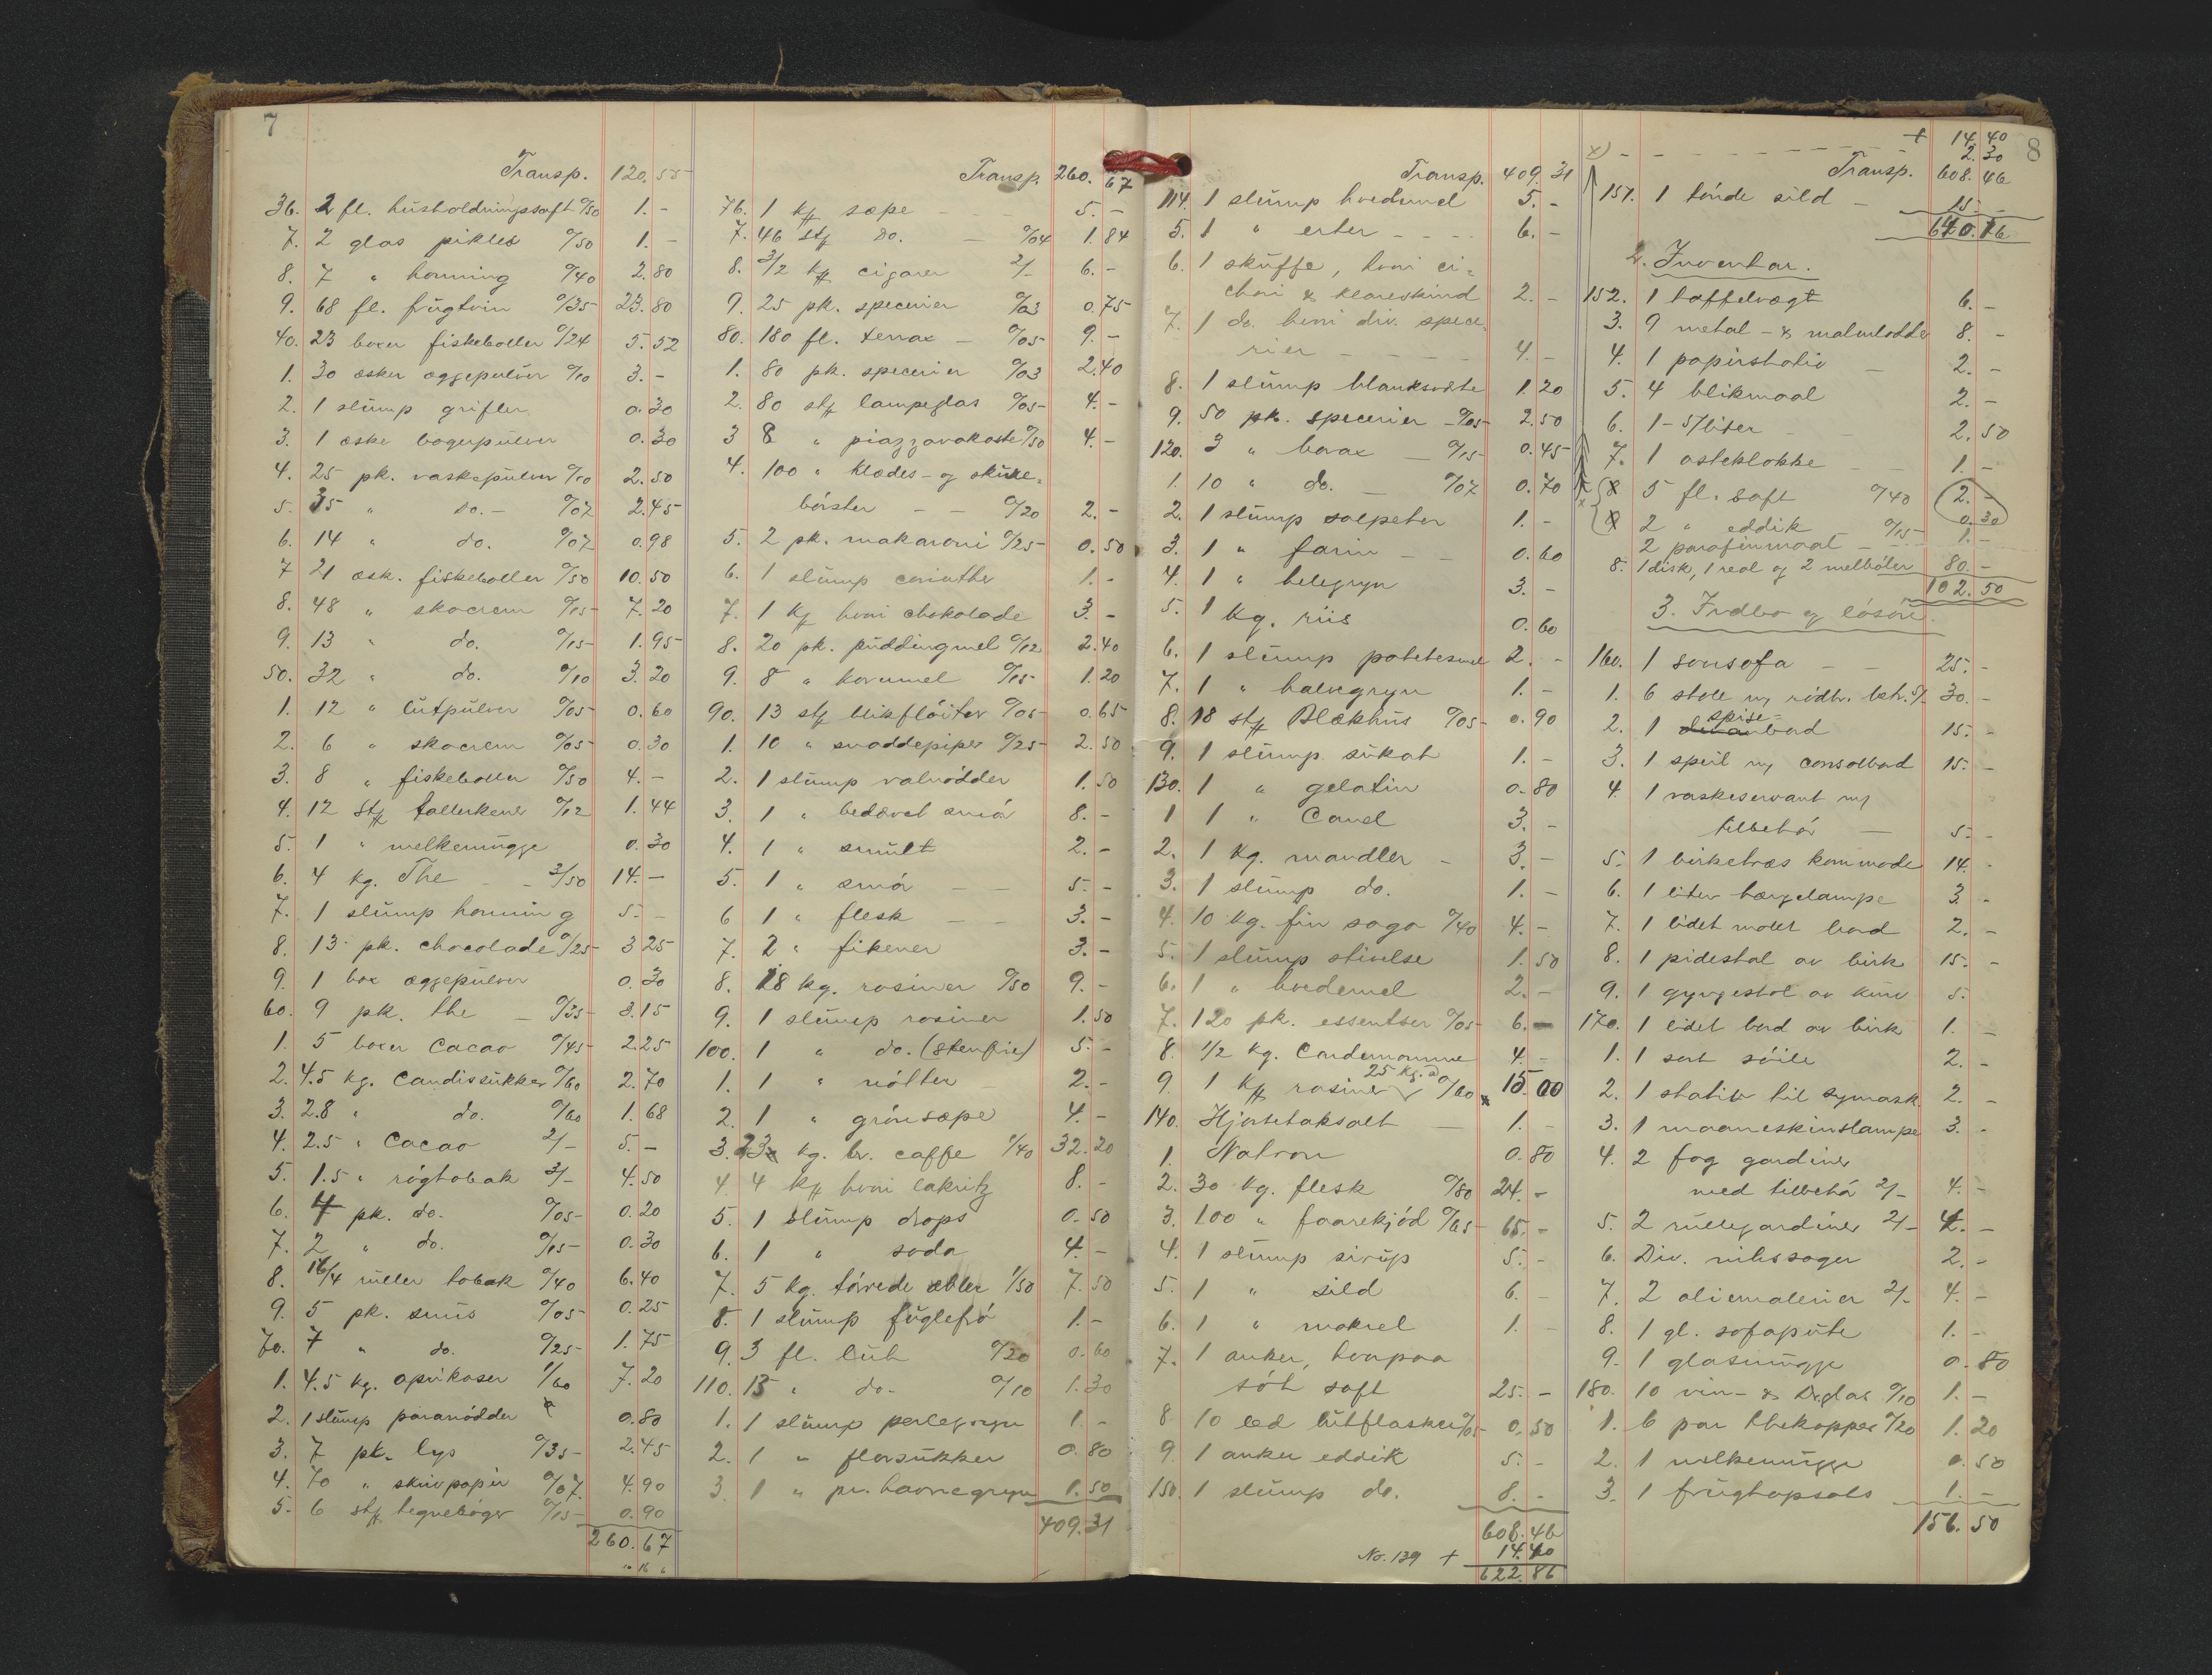 7
Transp. 120.55
36. 2 fl. husholdningssaft 0/50 1.-
7. 2 glas pikles 0/50 1.-
8. 7 " honning 0/40 2.80
9. 68 fl. frugtvin 0/35 23.80
40. 23 boxer fiskeboller 0/24 5.52
1. 30 æsker eggepulver 0/10 3.-
2. 1 slump grifler 0.30
3. 1 æske bagerpulver 0.30
4. 25 pk. vaskepulver 0/10 2.50
5. 35 " do. - 0/07 2.45
6. 14 " do. 0/07 0.98
7 21 æsk. fiskeboller 0/50 10.50
8. 48 " skocrem 0/15 7.20
9. 13 " do. 0/15 1.95
50. 32 " do. 0/10 3.20
1. 12 " lutpulver 0/05 0.60
2. 6 " skocrem 0/05 0.30
3. 8 " fiskeboller 0/50 4.-
4. 12 stk tallerkener 0/12 1.44
5. 1 " melkemugge 0.30
6. 4 kg. The - - 3/50 14.-
7. 1 slump honning 5.-
8. 13 pk. chocolade 0/25 3 25
9. 1 box eggepulver 0.30
60. 9 pk. the - 0/35 3.15
1. 5 boxer Cacao 0/45 2.25
2. 4.5 kg. Candissukker 0/60 2.70
3. 2.8 " do. 0/60 1.68
4. 2.5 " Cacao 2/- 5.-
5. 1.5 " røgtobak 3/- 4.50
6. 4 pk. do. 0/05 0.20
7. 2 " do. 0/15 0.30
8. 16/4 ruller tobak 0/40 6.40
9. 5 pk. snus 0/05 0.25
70. 7 " do. 0/25 1.75
1. 4.5 kg. aprikoser 1/60 7.20
2. 1 slump paranødder 0.80
3. 7 pk. lys 0/35 2.45
4. 70 " skrivpapir 0/07. 4.90
5. 6 stk tegnebøger 0/15 0.90
260.67
Transp. 260.67
76. 1 ks sæpe - - 5.-
7. 46 stk do. - 0/04 1.84
8. 3/2 ks cigarer 2/- 6.-
9. 25 pk. specerier 0/03 0.75
80. 180 fl. terrax - 0/05 9.-
1. 80 pk. specerier 0/03 2.40
2. 80 stk lampeglas 0/05 4.-
3 8 " piazzavakoste 0/50 4.-
4. 100 " klædes- og skure-
børster - - 0/20 2.-
5. 2 pk. makaroni 0/25 0.50
6. 1 slump corinther 1.-
7. 1 ks hvori chokolade 3.-
8. 20 pk. puddingmel 0/12 2.40
9. 8 " kornmel 0/15 1.20
90. 13 stk blikfløiter 0/05 0.65
1. 10 " snaddepiper 0/25 2.50
2. 1 slump valnødder 1.50
3. 1 " bedærvet smør 8.-
4. 1 " smult 2.-
5. 1 " smør - - 5.-
6 1 " flesk - - 3.-
7. 2 " fikener 3.-
8. 18 kg. rosiner 0/50 9.-
9. 1 slump rosiner 1.50
100. 1 " do. (stenfrie) 5.-
1. 1 " nøtter - 2.-
2. 1 " grønsæpe 4.-
3. 23 kg. br. caffe 1/40 32.20
4. 4 ks hvori lakritz 8.-
5. 1 slump drops 0.50
6. 1 " soda 4.-
7. 5 kg. tørrede æbler 1/50 7.50
8. 1 slump fuglefrø 1.-
9. 3 fl. lut 0/20 0.60
110. 13 " do. 0/10 1.30
1. 1 slump perlegryn 1.-
2. 1 " florsukker 0.80
3. 1 " pr. havregryn 1.50
409.31
Transp. 409.31
114. 1 slump hvedemel 5.-
5. 1 " erter - - - - 6.-
6. 1 skuffe, hvori ci-
chori & klareskind 2.-
7. 1 do. hvori div. spece-
rier - - - - 4.-
8. 1 slump blanksværte 1.20
9. 50 pk. specerier - 0/05 2.50
120. 3 " borax - 0/15 0.45
1. 10 " do. - 0/07 0.70
2. 1 slump salpeter 1.-
3. 1 " farin - - 0.60
4. 1 " helegryn 3.-
5. 1 kg. riis 0.60
6. 1 slump potetesmel 2.-
7. 1 " halvegryn 1.-
8. 18 stk Blækhus 0/05 0.90
9. 1 slump sukat 1.-
130. 1 " gelatin 0.80
1 1 " Canel 3.-
2. 1 kg. mandler - 3.-
3. 1 slump do. 1.-
4. 10 kg. fin sago 0/40 4.-
5. 1 slump stivelse 1.50
6. 1 " hvedemel 2.-
7. 120 pk. essentser 0/05 6.-
8. 1/2 kg. Cardemomme 4.-
25 kg. a
9 1 ks rosiner 0/60 15.00
140. Hjortetaksalt - 1.-
1. Natron 0.80
2. 30 kg. flesk 0/80 24.-
3. 100 " faarekjød 0/65 65.-
4. 1 slump sirup 5.-
5. 1 " sild 6.-
6. 1 " makrel 1.-
7. 1 anker, hvorpaa
søt saft 25.-
8 10 led lutflasker 0/05 0.50
9. 1 anker eddik 5.-
150. 1 slump do. 8.-
608.46
No. 139 + 14.40
622.86
8
+ 14.40
x) - - - - - - - 2.30
Transp. 608.46
151. 1 tønde sild - 15.-
640.16
2. Inventar.
152. 1 taffelvægt 6.-
3. 9 metal- & malmlodder 8.-
4. 1 papirstativ - 2.-
5. 4 blikmaal 2.-
6. 1 - 5/liter - 2.50
7. 1 osteklokke - - 1.-
8 5 fl. saft 0/40 2.-
9 2 " eddik 0/15 0.30
2 parafinmaal - - 1.-
8. 1 disk, 1 reol og 2 melbøler 80.-
102.50
3. Indbo og løsøre.
160. 1 sovsofa - - 25.-
1. 6 stole m/ rødbr. betr. 5/- 30.-
spise-
2. 1 bord 15.-
3. 1 speil m/ consolbord 15.-
4. 1 vaskeservant m/
tilbehør - 5.-
5. 1 birketræs kommode 14.-
6. 1 liten hængelampe 3.-
7. 1 lidet malet bord 2.-
8. 1 pidestal av birk 15.-
9. 1 gyngestol av kurv 5.
170. 1 lidet bord av birk 1.-
1. 1 sort søile 2.-
2. 1 stativ til symask. 2.-
3. 1 maaneskinslampe 3.-
4. 2 fag gardiner
med tilbehør 2/- 4.-
5. 2 rullegardiner 2/- 4.-
6. Div. nipssager 2.-
7. 2 oliemalerier 2/- 4.-
8. 1 gl. sofapute 1.-
9. 1 glasmugge 0.80
180. 10 vin- & Dr.glas 0/10 1.-
1. 6 par thekopper 0/20 1.20
2. 1 melkemugge 0.50
3. 1 frugtopsats 1.-
156.50